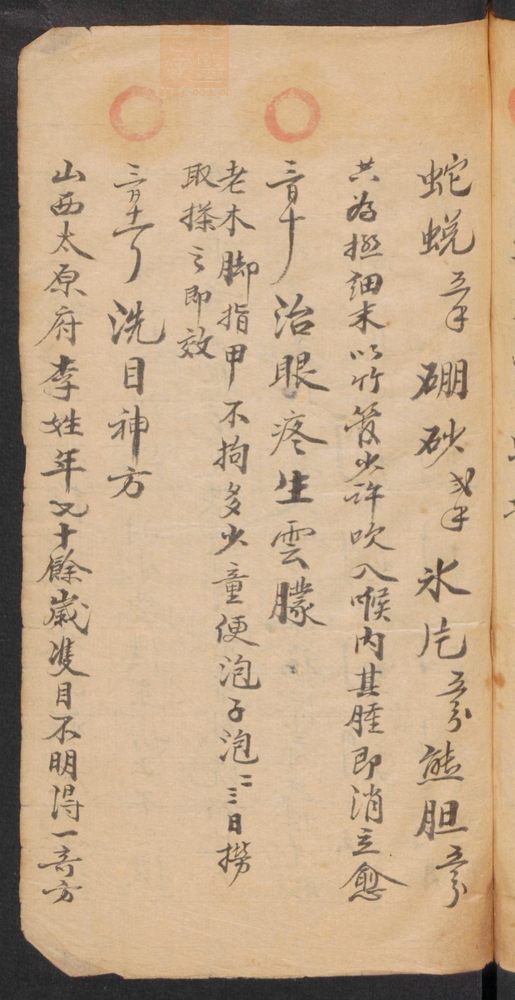 蛇蜕 硼砂 氷片 熊胆
共為極細末以竹管少許吹入喉内其腫即消立愈
治眼疼生雲朦
老木脚指甲不拘多少童便泡子泡二三日撈
取搽之即效
洗目神方
山西太原府李姓年七十餘歲雙目不明得一奇方